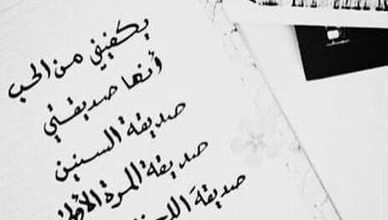 يكفيني من الحب
أنها صديقتي
صديقة السنين
صديقة المرة الأولى
صديقة